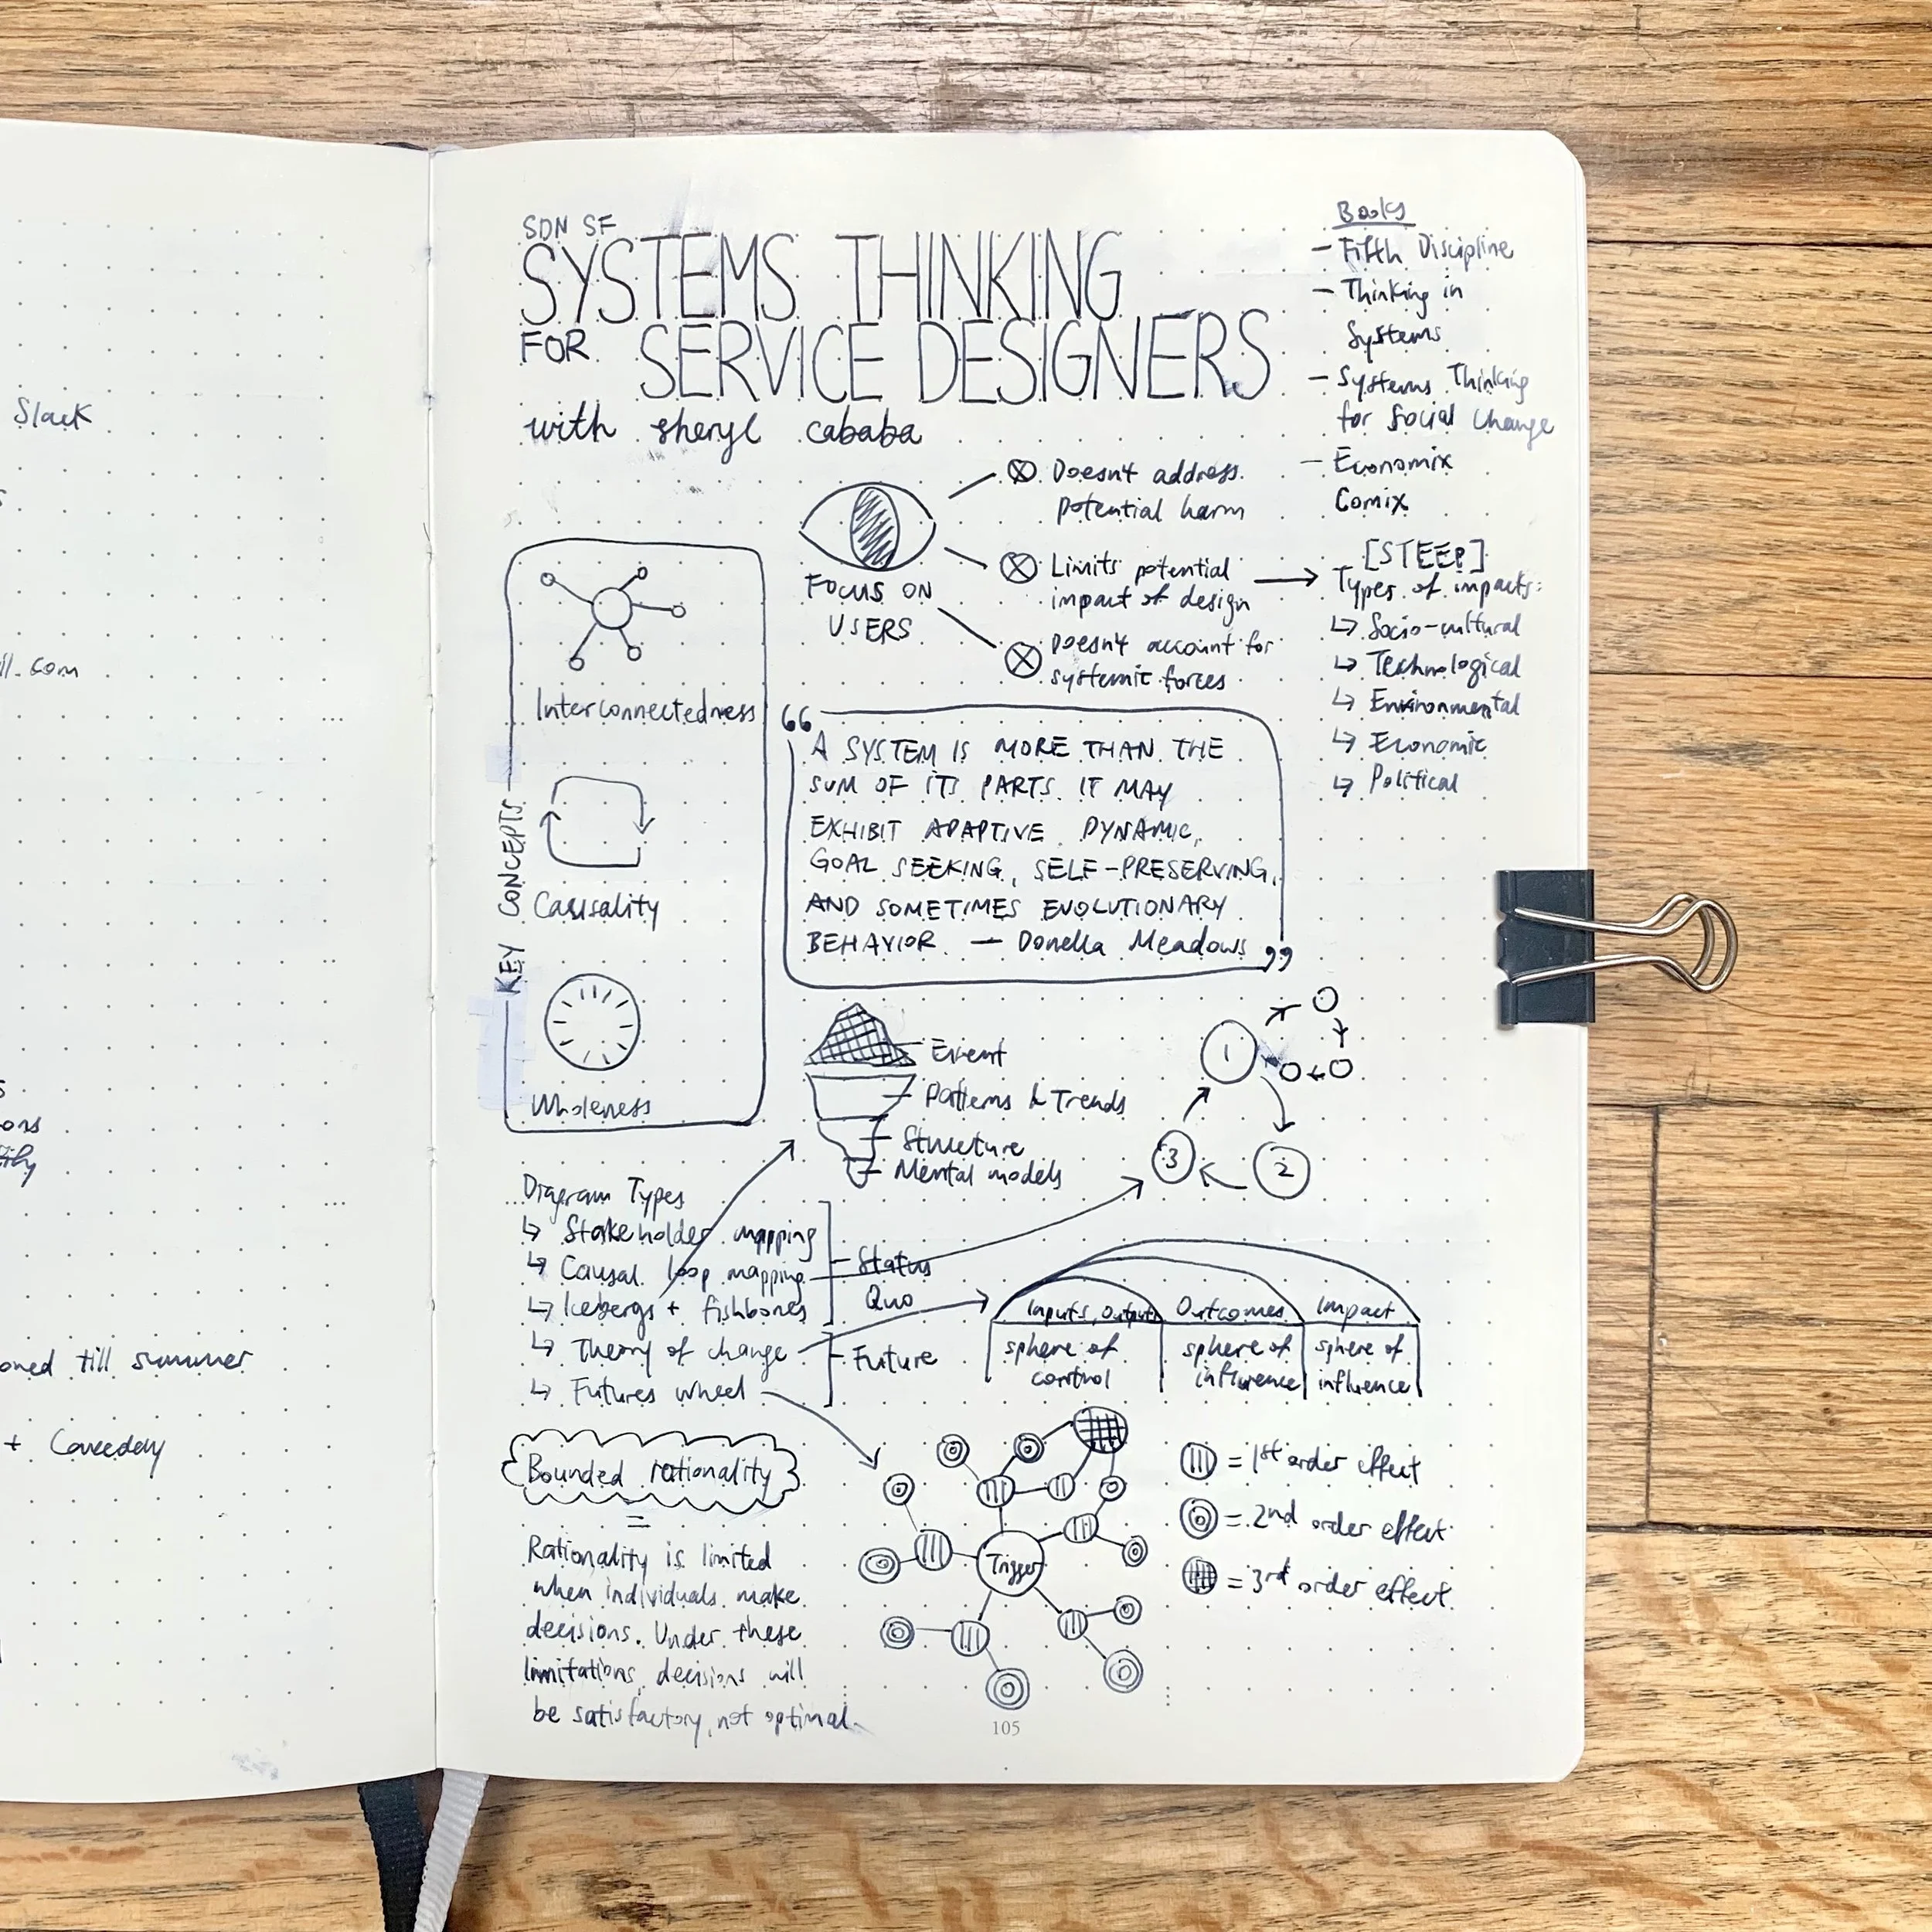 Slack
ll.com
ons
oned till summer
+ Caveday
SDN SF
SYSTEMS THINKING
FOR SERVICE DESIGNERS
with sheryl cababa
Books
- Fifth Discipline
- Thinking in
Systems
- Systems Thinking
for Social Change
- Economix
Comix
FOCUS ON
USERS
Doesn't address
potential harm
Limits potential
impact of design
Doesn't account for
systemic forces
[STEEP]
Types of impacts:
↳ Socio-cultural
↳ Technological
↳ Environmental
↳ Economic
↳ Political
KEY CONCEPTS
Interconnectedness
Causality
Wholeness
“A SYSTEM IS MORE THAN THE
SUM OF ITS PARTS. IT MAY
EXHIBIT ADAPTIVE, DYNAMIC,
GOAL SEEKING, SELF-PRESERVING,
AND SOMETIMES EVOLUTIONARY
BEHAVIOR. — Donella Meadows”
Event
Patterns & Trends
Structure
Mental models
1
2
3
Diagram Types
↳ Stakeholder mapping
↳ Causal loop mapping
↳ Icebergs + fishbones
↳ Theory of change
↳ Futures wheel
Status
Quo
Future
Inputs, Outputs
Outcomes
Impact
sphere of
control
sphere of
influence
sphere of
influence
Bounded rationality
=
Rationality is limited
when individuals make
decisions. Under these
limitations, decisions will
be satisfactory, not optimal.
Trigger
= 1st order effect
= 2nd order effect
= 3rd order effect
105